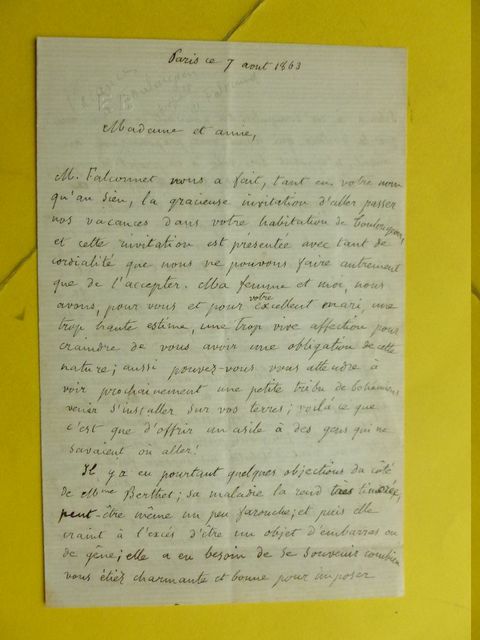 Paris ce 7 aout 1863
Madame et amie,
M. Falconnet nous a fait, tant en votre nom
qu'au sien, la gracieuse invitation d'aller passer
nos vacances dans votre habitation de
et cette invitation est présentée avec tant de
cordialité que nous ne pouvons faire autrement
que de l'accepter. Ma femme et moi, nous
avons, pour vous et pour votre excellent mari, une
trop haute estime, une trop vive affection pour
craindre de vous avoir une obligation de cette
nature; aussi pouvez-vous vous attendre à
voir prochainement une petite tribu de bohémiens
venir s'installer sur vos terres; voilà ce que
c'est que d'offrir un asile à des gens qui ne
savaient où aller!
Il y a eu pourtant quelques objections du côté
de Mme Berthet; sa maladie la rend très timorée,
peut-être même un peu farouche; et puis elle
craint à l'excès d'être un objet d'embarras ou
de gêne; elle a eu besoin de se souvenir combien
vous étiez charmante et bonne pour imposer